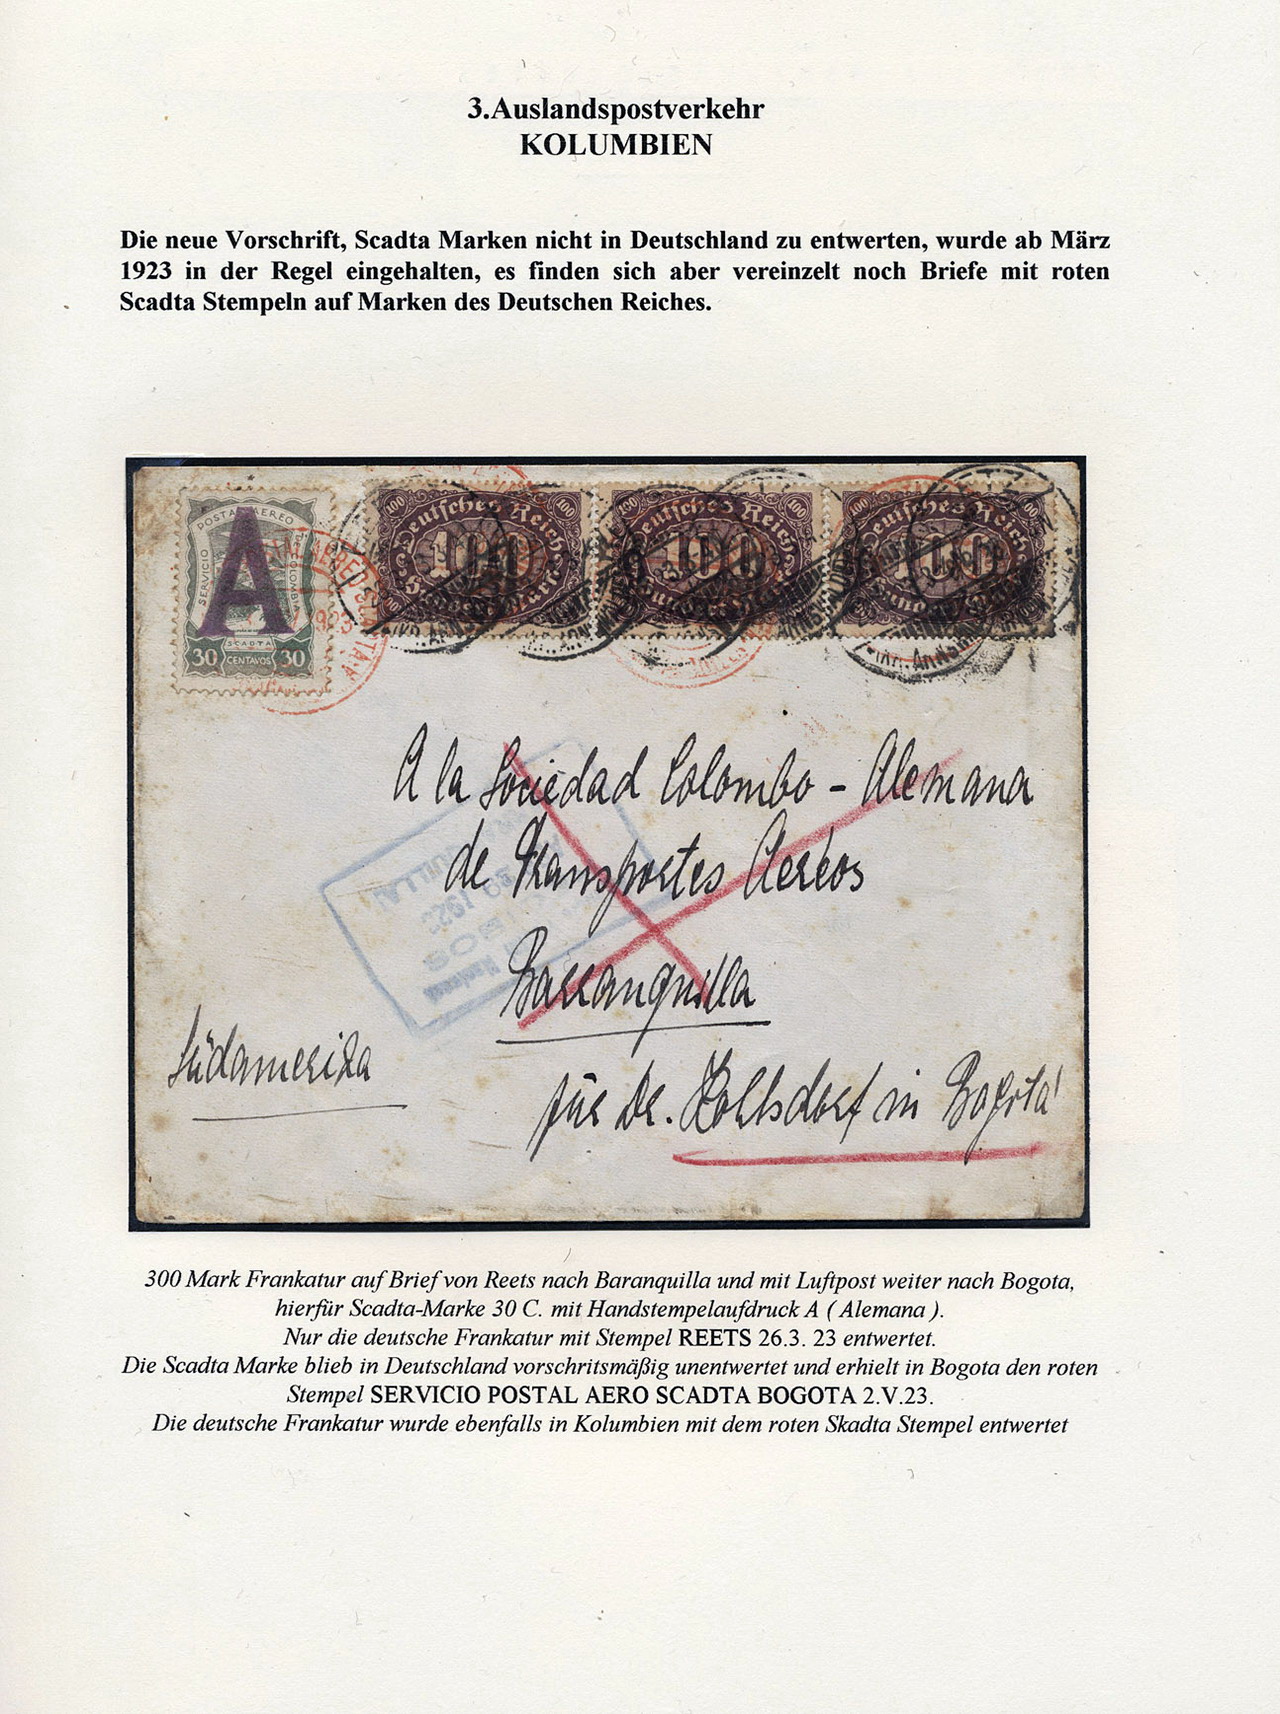 3.Auslandspostverkehr
KOLUMBIEN
Die neue Vorschrift, Scadta Marken nicht in Deutschland zu entwerten, wurde ab März
1923 in der Regel eingehalten, es finden sich aber vereinzelt noch Briefe mit roten
Scadta Stempeln auf Marken des Deutschen Reiches.
SERVICIO POSTAL AEREO DE COLOMBIA
A
SCADTA
30 CENTAVOS 30
1923
100 Deutsches Reich 100
100
100 Deutsches Reich 100
100
Deutsches Reich
100
A la Sociedad Colombo - Alemana
de Transportes Aereos
Barranquilla
Südamerika
für Dr. Kohlsdorf in Bogotá
300 Mark Frankatur auf Brief von Reets nach Baranquilla und mit Luftpost weiter nach Bogota,
hierfür Scadta-Marke 30 C. mit Handstempelaufdruck A ( Alemana ).
Nur die deutsche Frankatur mit Stempel REETS 26.3. 23 entwertet.
Die Scadta Marke blieb in Deutschland vorschritsmäßig unentwertet und erhielt in Bogota den roten
Stempel SERVICIO POSTAL AERO SCADTA BOGOTA 2.V.23.
Die deutsche Frankatur wurde ebenfalls in Kolumbien mit dem roten Skadta Stempel entwertet